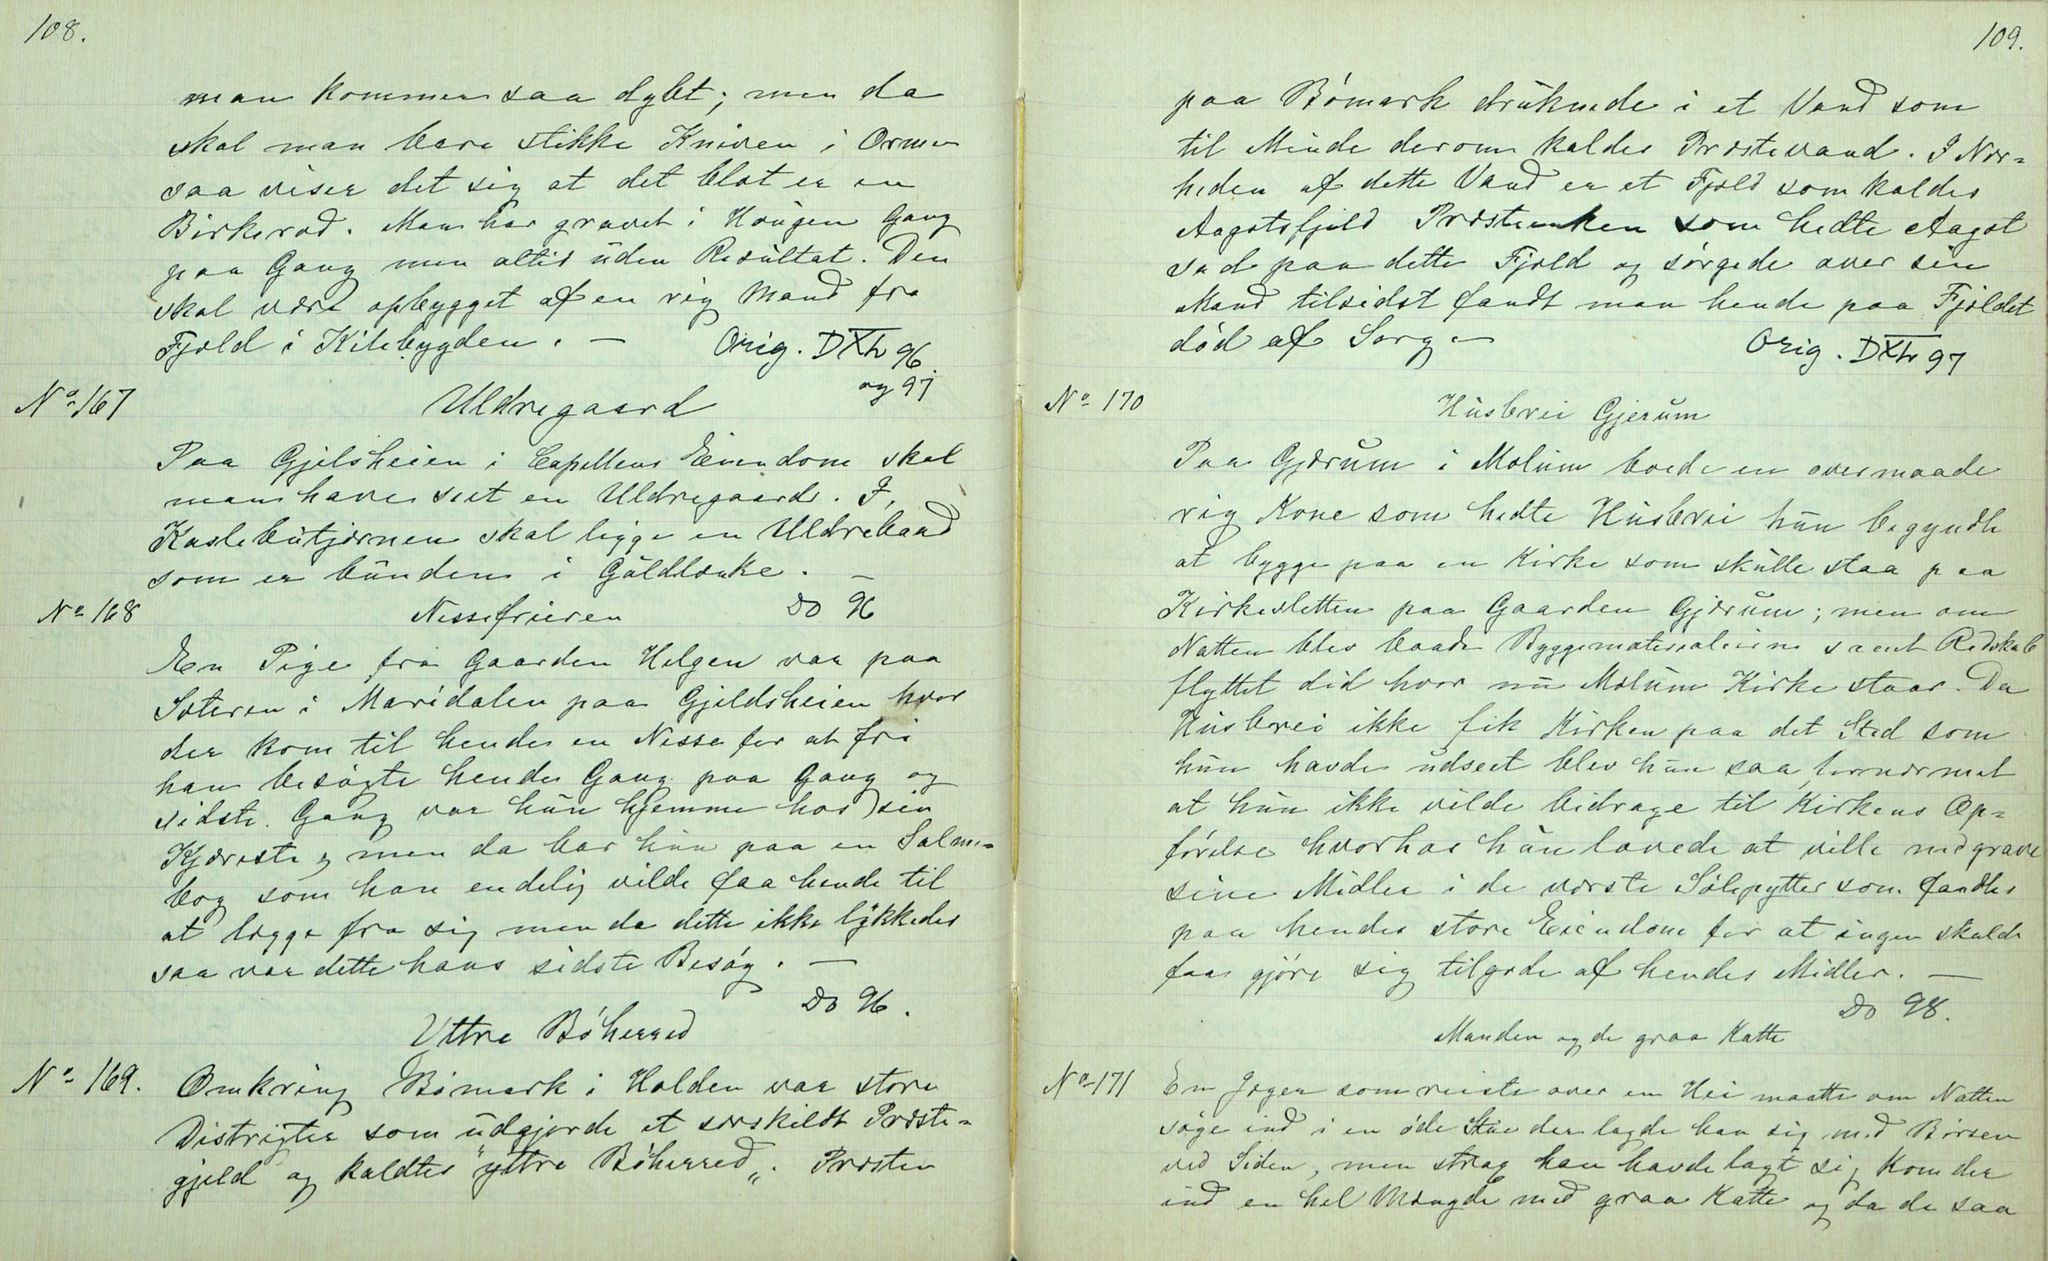 108.
man kommer saa dybt; men da
skal man bare stikke Kniven i Ormen
saa viser det sig at det blot er en
Birkerod. Man har gravet i Haugen Gang
paa Gang men altid uden Resultat. Den
skal være opbygget af en rig Mand fra
Fjæld i Kilebygden. —
Orig. DXIV 96.
og 97
No 167
Uldregaard
Paa Gjelsheien i Capellens Eiendom skal
man have seet en Uldregaard. I
Kaslebutjærnen skal ligge en Uldrebaad
som er bunden i Guldlænke. —
Do 96
No 168
Nissefrieren
En Pige fra Gaarden Helgen var paa
Sæteren i Maridalen paa Gjeldsheien hvor
der kom til hende en Nisse for at fri
han besøgte hende Gang paa Gang og
sidste Gang var hun hjemme hos sin
Kjæreste, men da bar hun paa en Salme-
bog som han endelig vilde faa hende til
at lægge fra sig men da dette ikke lykkedes
saa var dette hans sidste Besøg. —
Do 96.
Yttre Bøherred
No 169.
Omkring Bømark i Holden var store
Distrigter som udgjorde et særskildt Præste-
gjeld og kaldtes "yttre Bøherred„. Præsten
109.
paa Bømark druknede i et Vand som
til Minde derom kaldes Præstevand. I Nær=
heden af dette Vand er et Fjeld som kaldes
Aagotsfjeld Præsteenken som hedte Aagot
sad paa dette Fjeld og sørgede over sin
Mand tilsidst fandt man hende paa Fjeldet
død af Sorg. —
Orig. DXIV 97
No 170
Husbrei Gjerum
Paa Gjærum i Mælum boede en overmaade
rig Kone som hedte Husbrei hun begyndte
at bygge paa en Kirke som skulle staa paa
Kirkesletten paa Gaarden Gjærum; men om
Natten blev baade Byggematerialierne samt Redskab
flyttet did hvor nu Mælum Kirke staar. Da
Husbrei ikke fik Kirken paa det Sted som
hun havde udseet blev hun saa fornærmet
at hun ikke vilde bidrage til Kirkens Op=
førelse hvorhos hun lovede at ville nedgrave
sine Midler i de værste Sølepytter som fandtes
paa hendes store Eiendom for at ingen skulde
faa gjøre sig tilgode af hendes Midler. —
Do 98.
Manden og de graa Katte
No 171
En Jæger som reiste over en Hei maatte om Natten
søge ind i en øde Stue der lagde han sig med Børsen
ved Siden, men strax han havde lagt sig kom der
ind en hel Mængde med graa Katte og da de saa